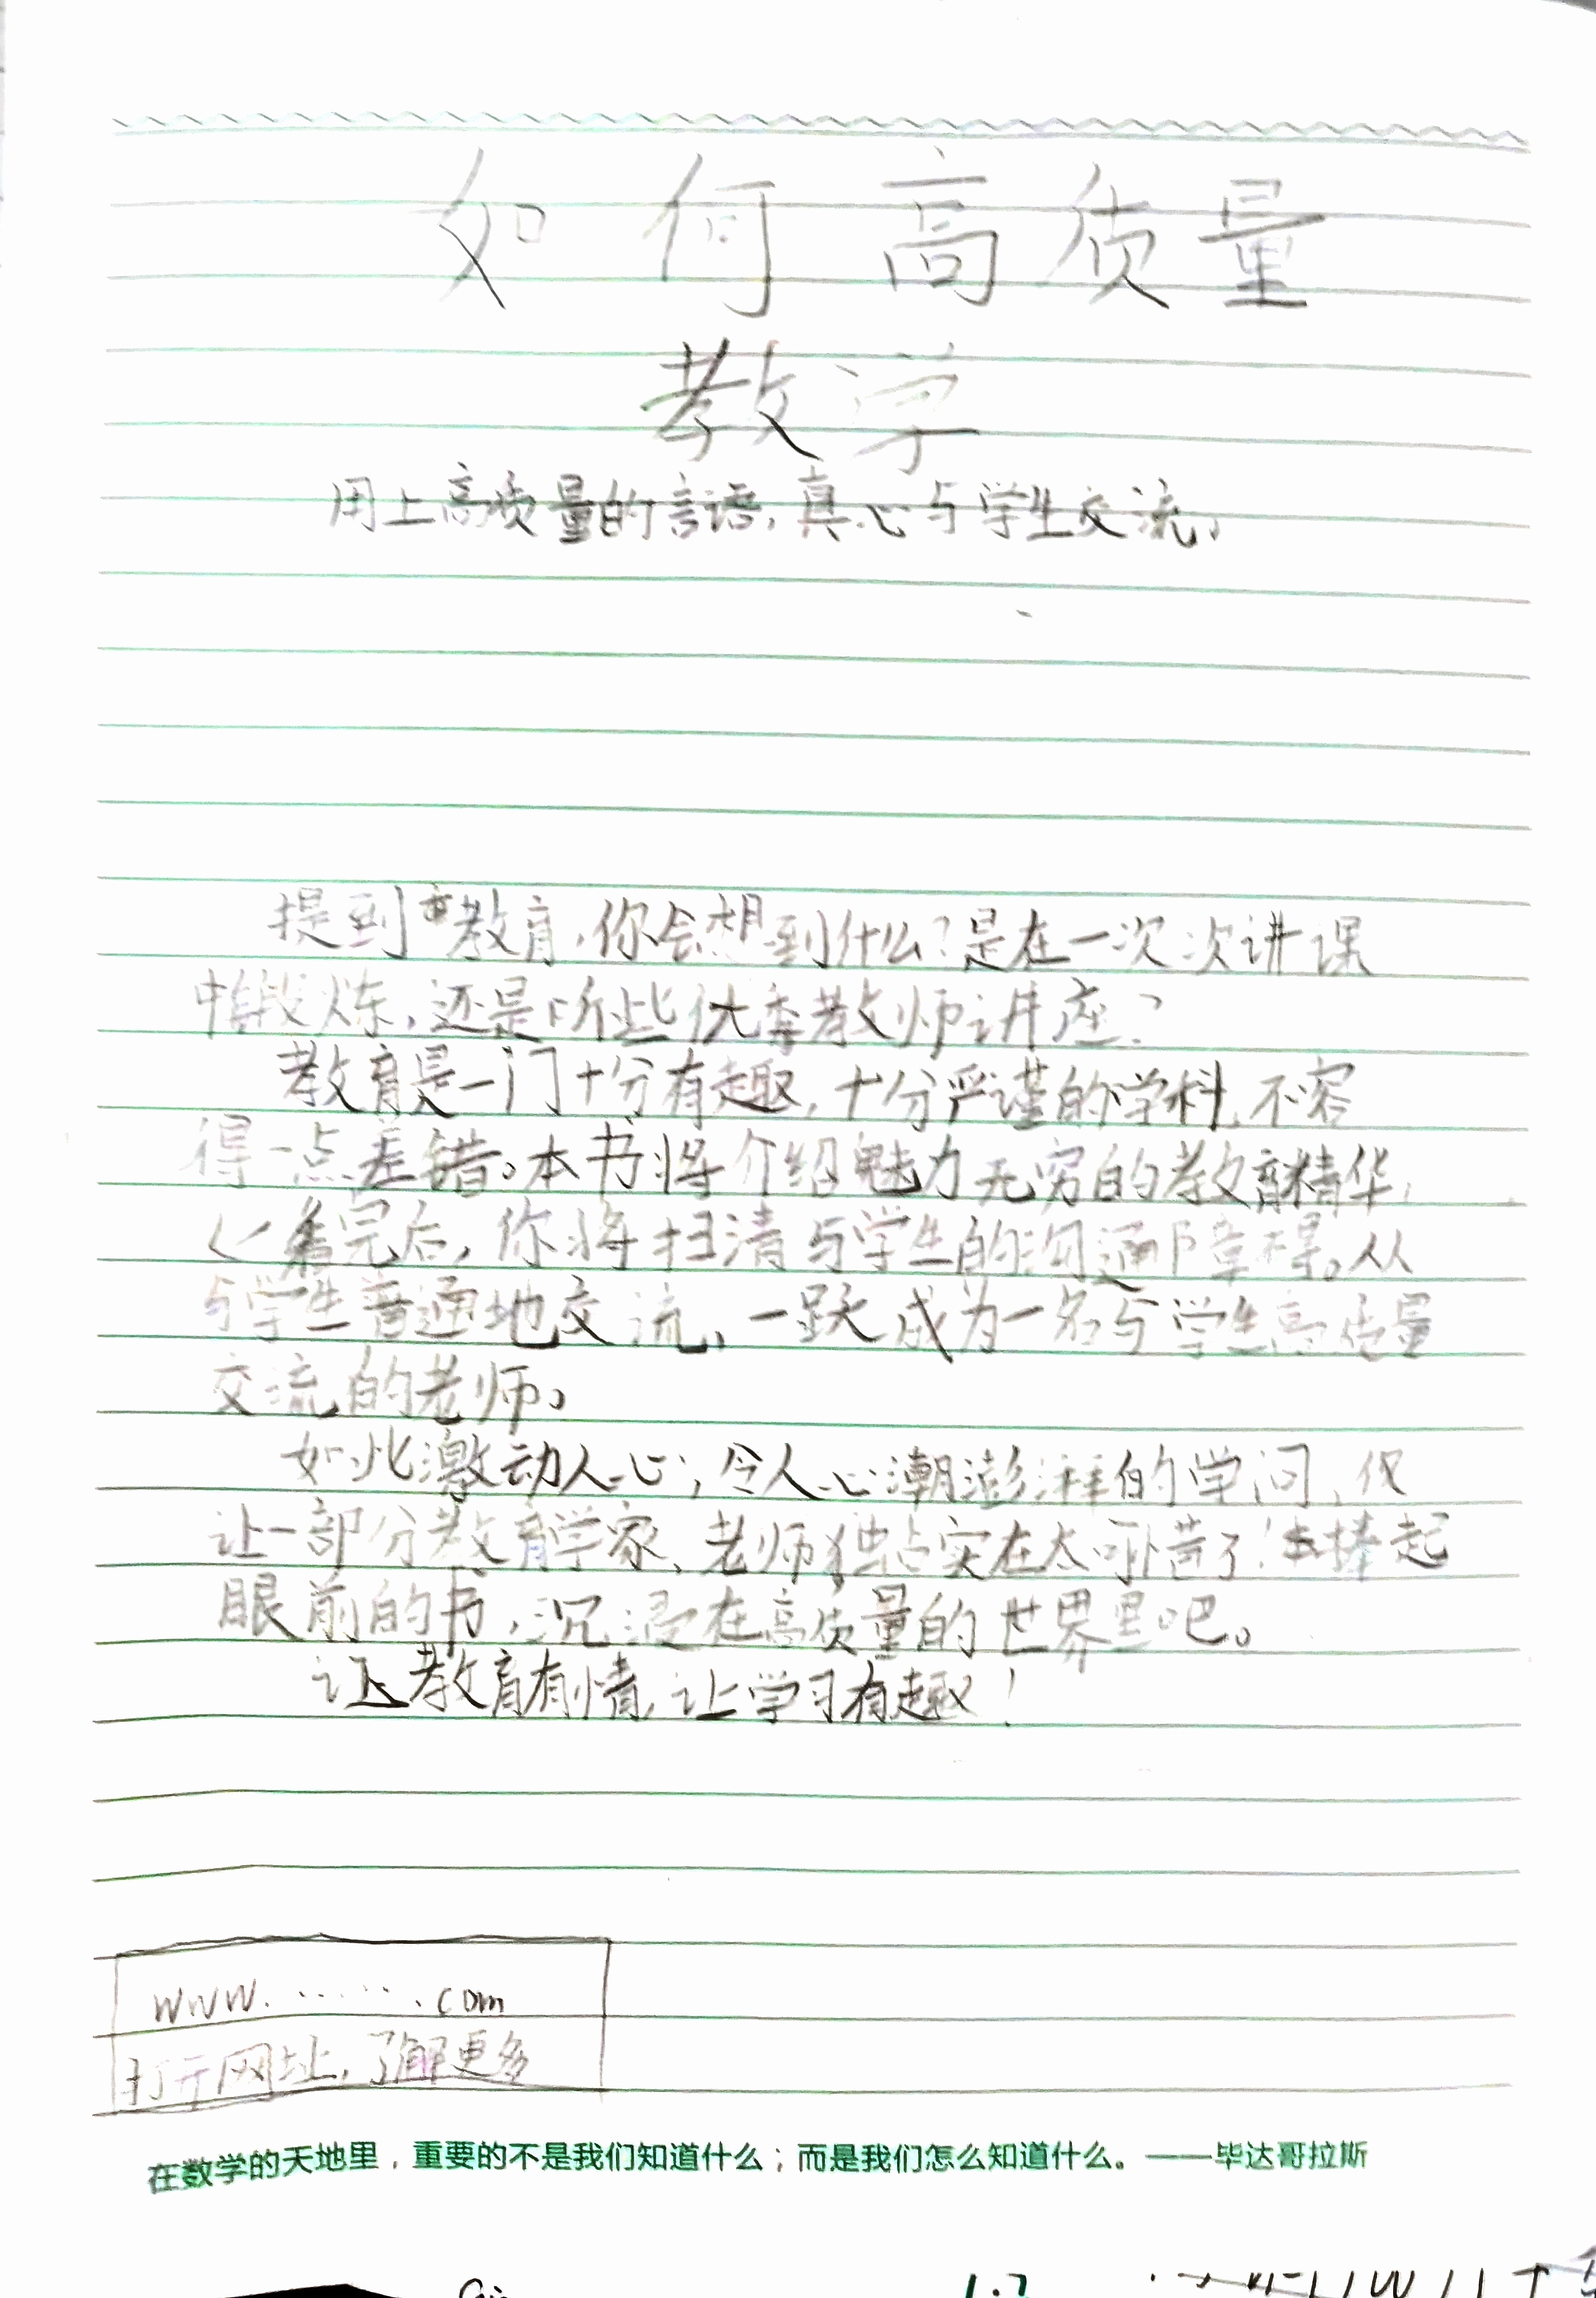 如何高质量
教学
用上高质量的言语,真心与学生交流,
提到教育,你会想到什么?是在一次次讲课
中锻炼,还是听些优秀教师讲座?
教育是一门十分有趣,十分严谨的学科,不容
得一点差错。本书将介绍魅力无穷的教育精华,
完后,你将扫清与学生的沟通障碍。从
与学生普通地交流,一跃成为一名与学生高质量
交流的老师。
如此激动人心,令人心潮澎湃的学问,仅
让一部分教育学家、老师独占实在太可惜了!捧起
眼前的书,沉浸在高质量的世界里吧。
让教育有情,让学习有趣!
www.······.com
打开网址,了解更多
在数学的天地里,重要的不是我们知道什么;而是我们怎么知道什么。——毕达哥拉斯